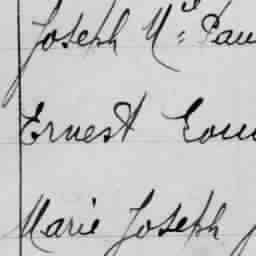 Joseph Mc: Pau
Ernest Gou
Marie Joseph